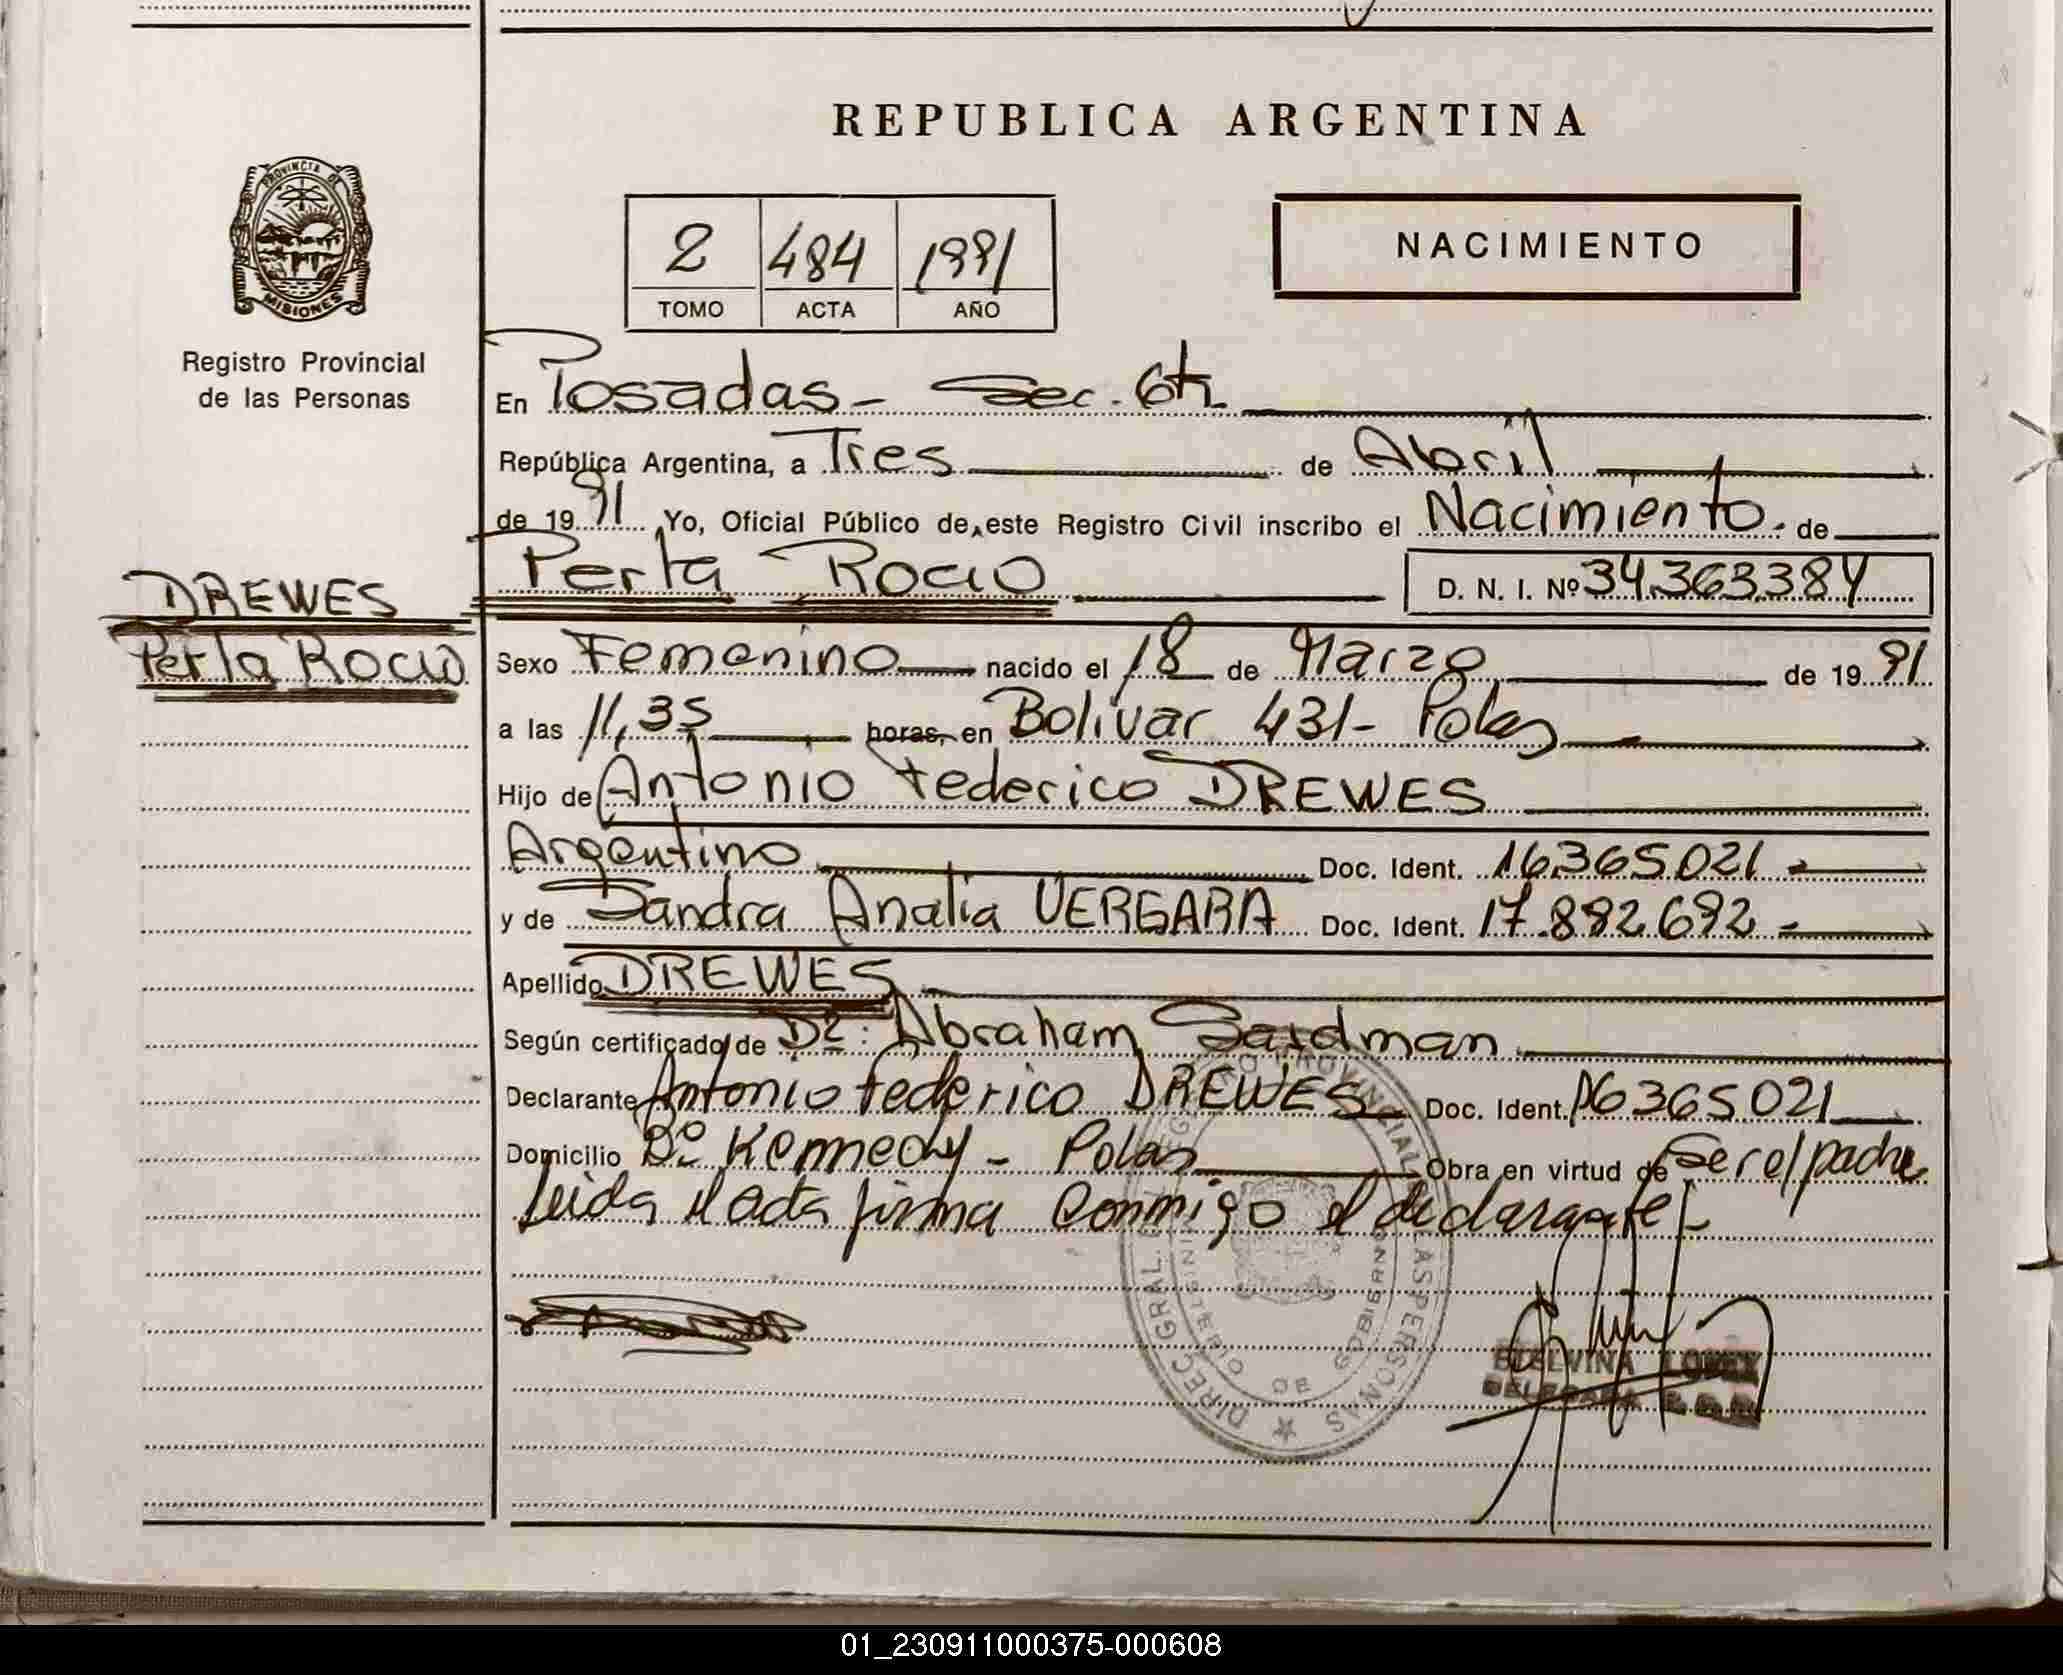 REPUBLICA ARGENTINA
PROVINCIA DE
MISIONES
Registro Provincial
de las Personas
2 484 1991
TOMO ACTA AÑO
NACIMIENTO
En Posadas - Sec. 6ta
República Argentina, a Tres de Abril
de 1991 Yo, Oficial Público de este Registro Civil inscribo el Nacimiento. de
Perla Rocio D. N. I. Nº 34.363.384
DREWES
Perla Rocio
Sexo Femenino nacido el 18 de Marzo de 1991
a las 11,35 horas, en Bolivar 431- Pdas
Hijo de Antonio Federico DREWES
Argentino Doc. Ident. 16.365.021 -
y de Sandra Analia VERGARA Doc. Ident. 17.892.692 -
Apellido DREWES
Según certificado de Dr: Abraham
Declarante Antonio Federico DREWES Doc. Ident. 16365021
Domicilio Bº Kennedy - Pdas Obra en virtud de Ser el padre
Leida el acta firma conmigo el declarante -
DIREC. GRAL. REGISTRO PROVINCIAL DE LAS PERSONAS
MINISTERIO DE GOBIERNO
LOPEZ
DELEGADA
01_230911000375-000608